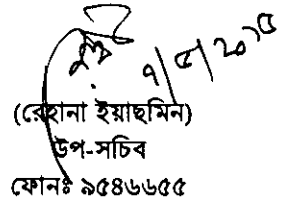 ৭/৫/২০১৫
(রেহানা ইয়াছমিন)
উপ-সচিব
ফোনঃ ৯৫৪৬৬৫৫